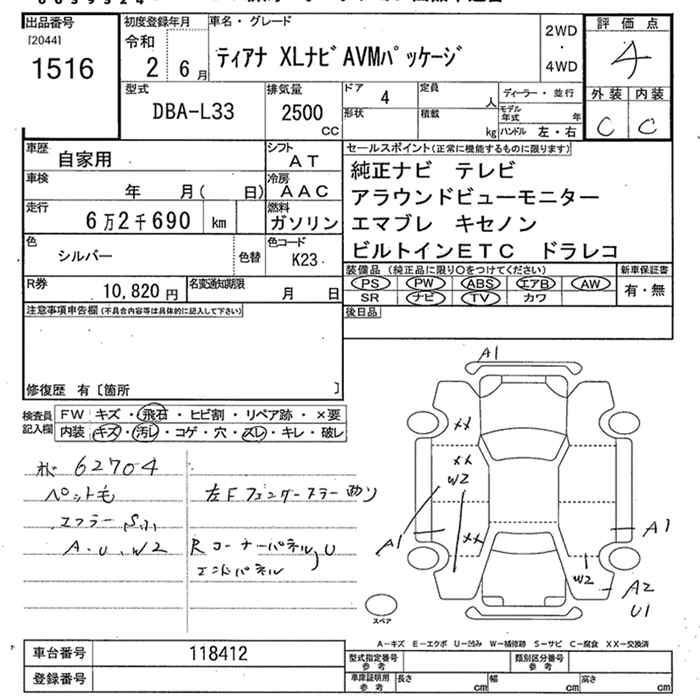 出品番号
[2044]
1516
初度登録年月
令和
2 6月
車名・グレード
ティアナ XLナビAVMパッケージ
2WD
・
4WD
評価点
4
外装 内装
C C
型式
DBA-L33
排気量
2500
CC
ドア 4
形状
定員
人
積載
kg
ディーラー・並行
モデル年式 年
ハンドル 左・右
車歴
自家用
シフト
AT
車検
年 月( 日)
冷房
AAC
走行
6万2千690 km
燃料
ガソリン
色
シルバー
色替
色コード
K23
R券
10,820円
名変通知期限
月 日
セールスポイント(正常に機能するものに限ります)
純正ナビ テレビ
アラウンドビューモニター
エマブレ キセノン
ビルトインETC ドラレコ
装備品(純正品に限り○をつけてください)
新車保証書
PS PW ABS エアB AW
有・無
SR ナビ TV カワ
後日品
注意事項申告欄(不具合内容等は具体的に記入して下さい)
修復歴 有〔箇所 〕
検査員
記入欄
FW キズ・飛石・ヒビ割・リペア跡・×要
内装 キズ・汚レ・コゲ・穴・スレ・キレ・破レ
62704
ペット毛
左Fフェンダーステー曲り
A.U.W2
Rコーナーパネル,U
エンドパネル
A1
XX
XX
W2
XX
A1
A1
W2
A2
U1
スペア
A-キズ E-エクボ U-凹み W-補修跡 S-サビ C-腐食 XX-交換済
車台番号
118412
登録番号
型式指定番号
参考
類別区分番号
参考
車庫証明用
参考
長さ cm
幅 cm
高さ cm